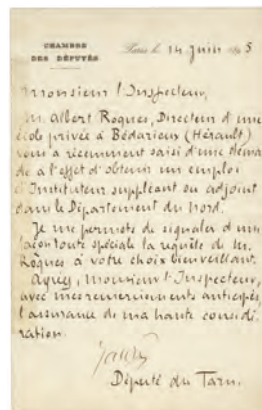 CHAMBRE
DES DÉPUTÉS
Paris le 14 Juin 1895
Monsieur l'Inspecteur,
M. Albert Roques, Directeur d'une
école privée à Bédarieux (Hérault)
vous a récemment saisi d'une deman
de à l'effet d'obtenir un emploi
d'Instituteur suppléant ou adjoint
dans le Département du Nord.
Je me permets de signaler d'une
façon toute spéciale la requête de M.
Roques à votre choix bienveillant.
Agréez, Monsieur l'Inspecteur,
avec mes remerciements anticipés,
l'assurance de ma haute considé
ration.
Député du Tarn.